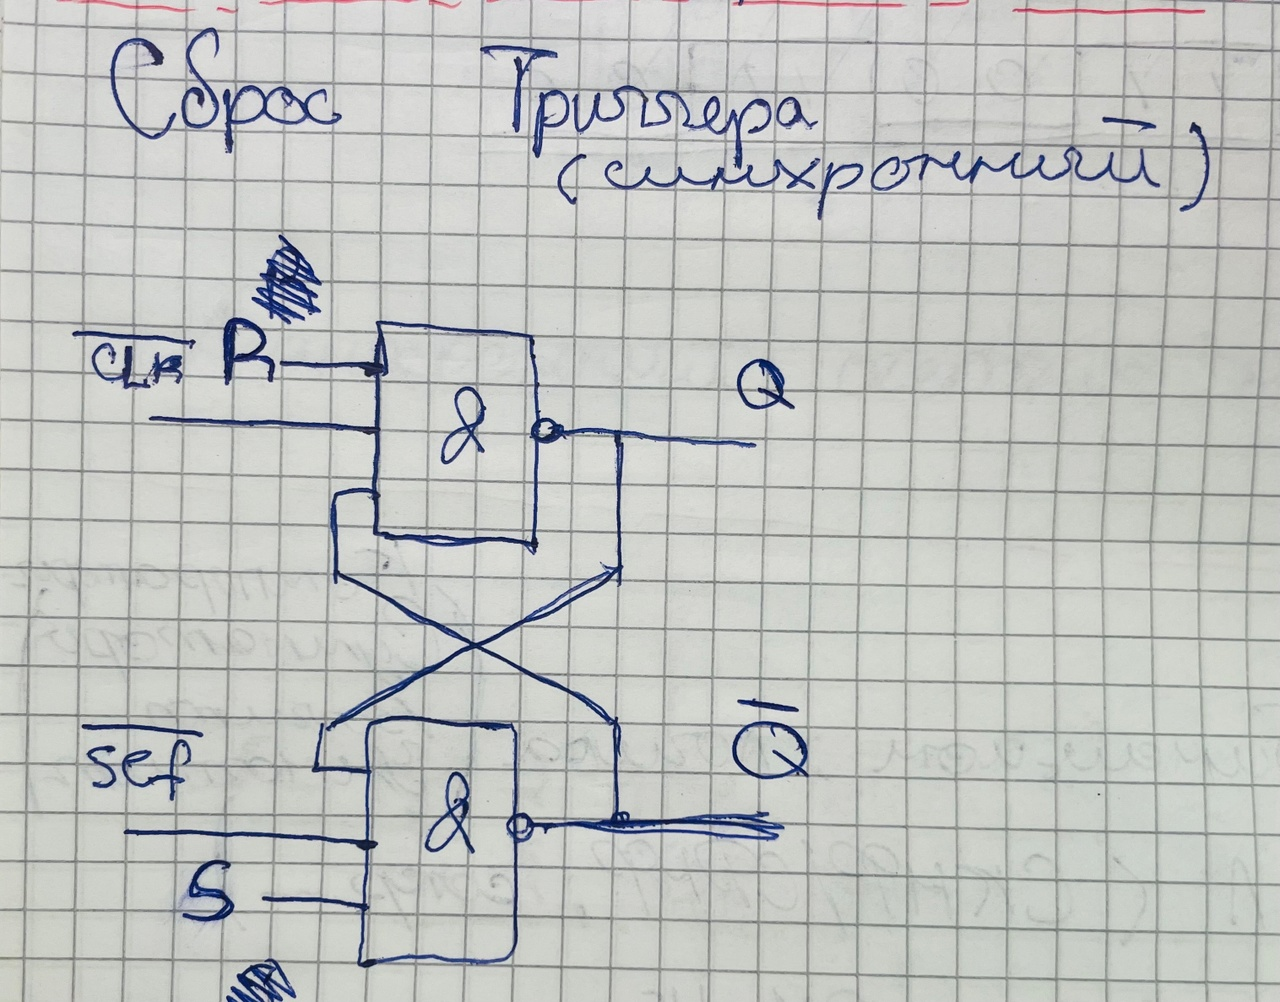 Сброс Триггера
(синхронний)
CLR R
Q
&
SEF
Q
&
S